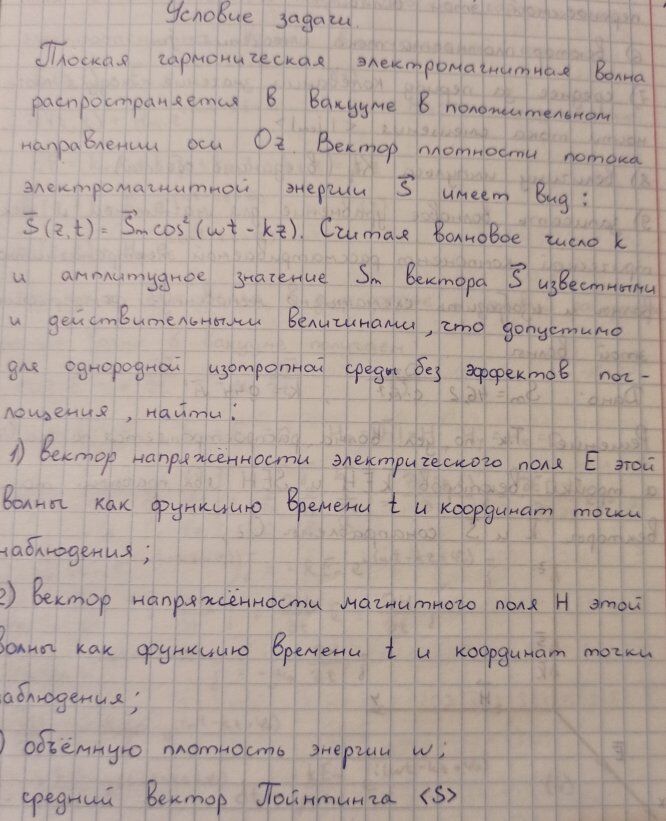 Условие задачи.
Плоская гармоническая электромагнитная волна
распространяется в вакууме в положительном
направлении оси Oz. Вектор плотности потока
электромагнитной энергии S⃗ имеет вид:
S⃗(z,t) = S⃗m cos²(ωt - kz). Считая волновое число k
и амплитудное значение Sm вектора S⃗ известными
и действительными величинами, что допустимо
для однородной изотропной среды без эффектов пог-
лощения, найти:
1) вектор напряжённости электрического поля E этой
волны как функцию времени t и координат точки
наблюдения;
2) вектор напряжённости магнитного поля H этой
волны как функцию времени t и координат точки
наблюдения;
) объёмную плотность энергии w;
средний вектор Пойнтинга <S>